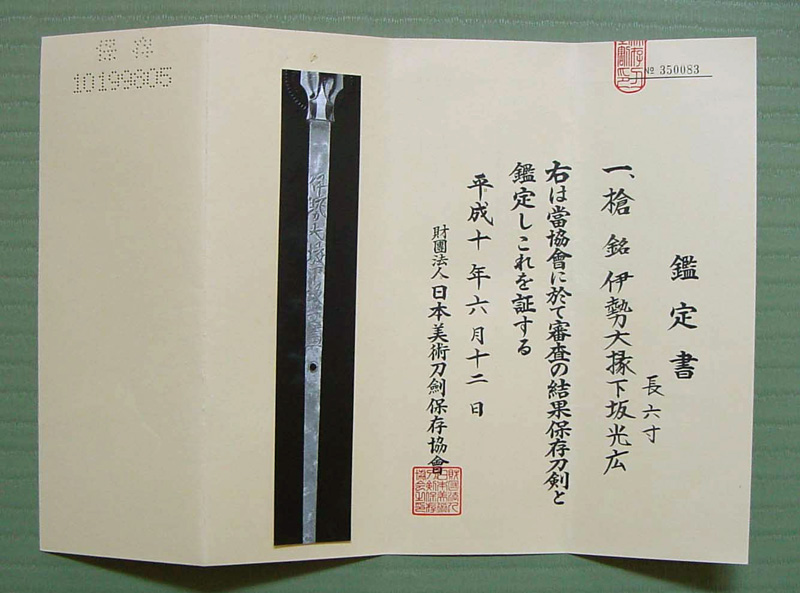 鑑定書
一、槍 銘 伊勢大掾下坂光広
長六寸
右は當協會に於て審査の結果保存刀剣と
鑑定しこれを証する
平成十年六月十二日
財團法人日本美術刀劍保存協會
№ 350083